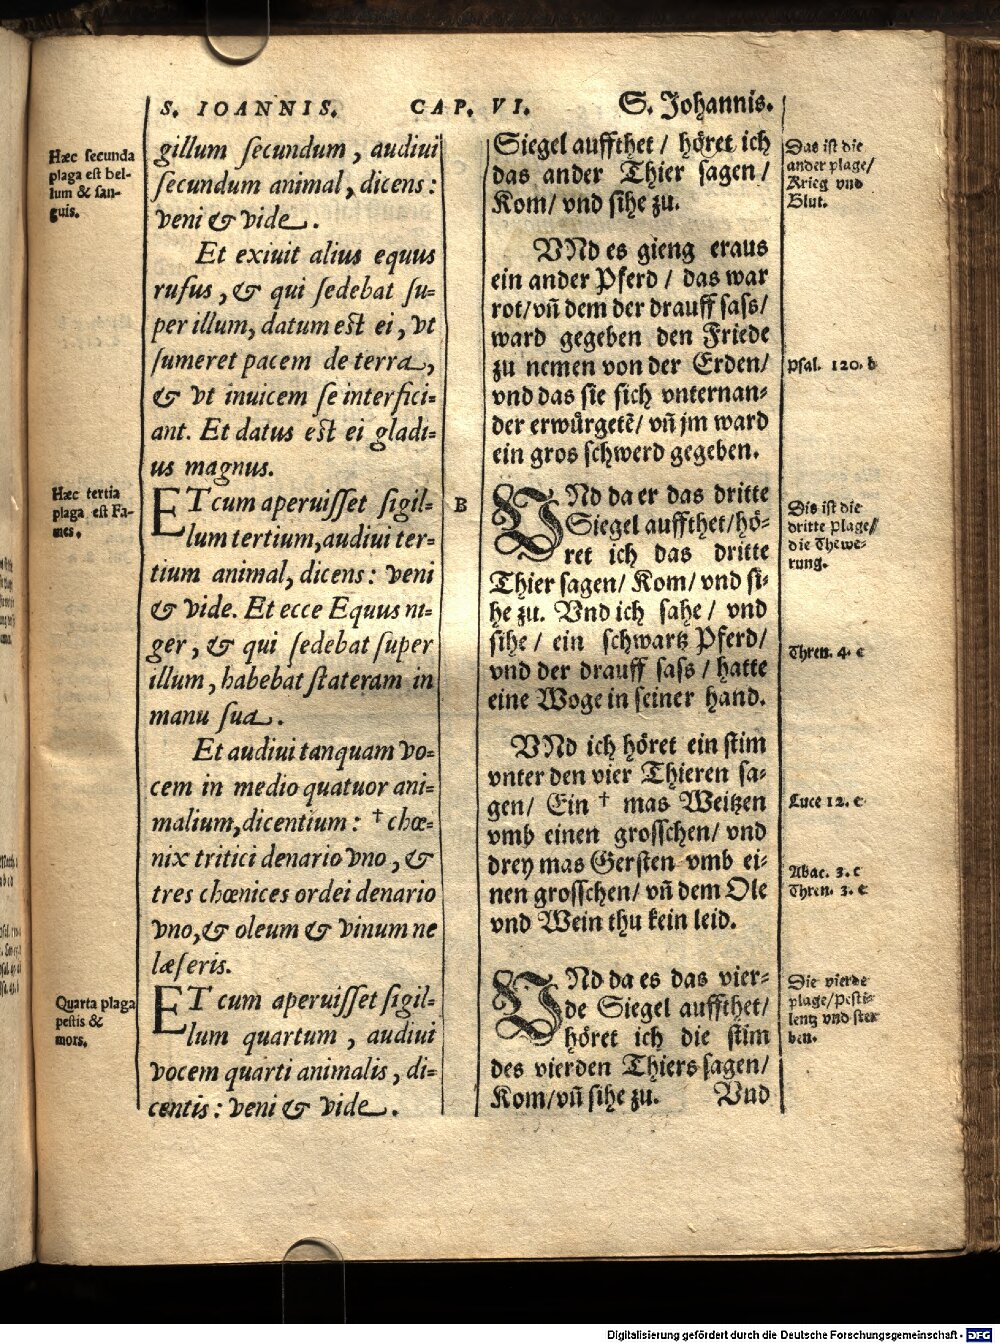 S. IOANNIS. CAP. VI. S. Johannis.
Hæc secunda
plaga est bel-
lum & san-
guis.
gillum secundum, audiui
secundum animal, dicens:
veni & vide.
Et exiuit alius equus
rufus, & qui sedebat su-
per illum, datum est ei, vt
sumeret pacem de terra,
& vt inuicem se interfici-
ant. Et datus est ei gladi-
us magnus.
Hæc tertia
plaga est Fa-
mes.
ET cum aperuisset sigil-
lum tertium, audiui ter-
tium animal, dicens: veni
& vide. Et ecce Equus ni-
ger, & qui sedebat super
illum, habebat stateram in
manu sua.
Et audiui tanquam vo-
cem in medio quatuor ani-
malium, dicentium: † chœ-
nix tritici denario vno, &
tres chœnices ordei denario
vno, & oleum & vinum ne
læseris.
Quarta plaga
pestis &
mors.
ET cum aperuisset sigil-
lum quartum, audiui
vocem quarti animalis, di-
centis: veni & vide.
B
Siegel auffthet / höret ich
das ander Thier sagen /
Kom / vnd sihe zu.
VNd es gieng eraus
ein ander Pferd / das war
rot / vñ dem der drauff sass /
ward gegeben den Friede
zu nemen von der Erden /
vnd das sie sich vnternan-
der erwürgetẽ / vñ jm ward
ein gros schwerd gegeben.
VNd da er das dritte
Siegel auffthet / hö-
ret ich das dritte
Thier sagen / Kom / vnd si-
he zu. Vnd ich sahe / vnd
sihe / ein schwartz Pferd /
vnd der drauff sass / hatte
eine Woge in seiner hand.
VNd ich höret ein stim
vnter den vier Thieren sa-
gen / Ein † mas Weitzen
vmb einen grosschen / vnd
drey mas Gersten vmb ei-
nen grosschen / vñ dem Ole
vnd Wein thu kein leid.
VNd da es das vier-
de Siegel auffthet /
höret ich die stim
des vierden Thiers sagen /
Kom / vñ sihe zu. Vnd
Das ist die
ander plage /
Krieg vnd
Blut.
Psal. 120. b
Dis ist die
dritte plage /
die Thewe-
rung.
Thren. 4. c
Luce 12. c
Abac. 3. c
Thren. 3. c
Die vierde
plage / Pesti-
lentz vnd ster
ben.
Digitalisierung gefördert durch die Deutsche Forschungsgemeinschaft - DFG